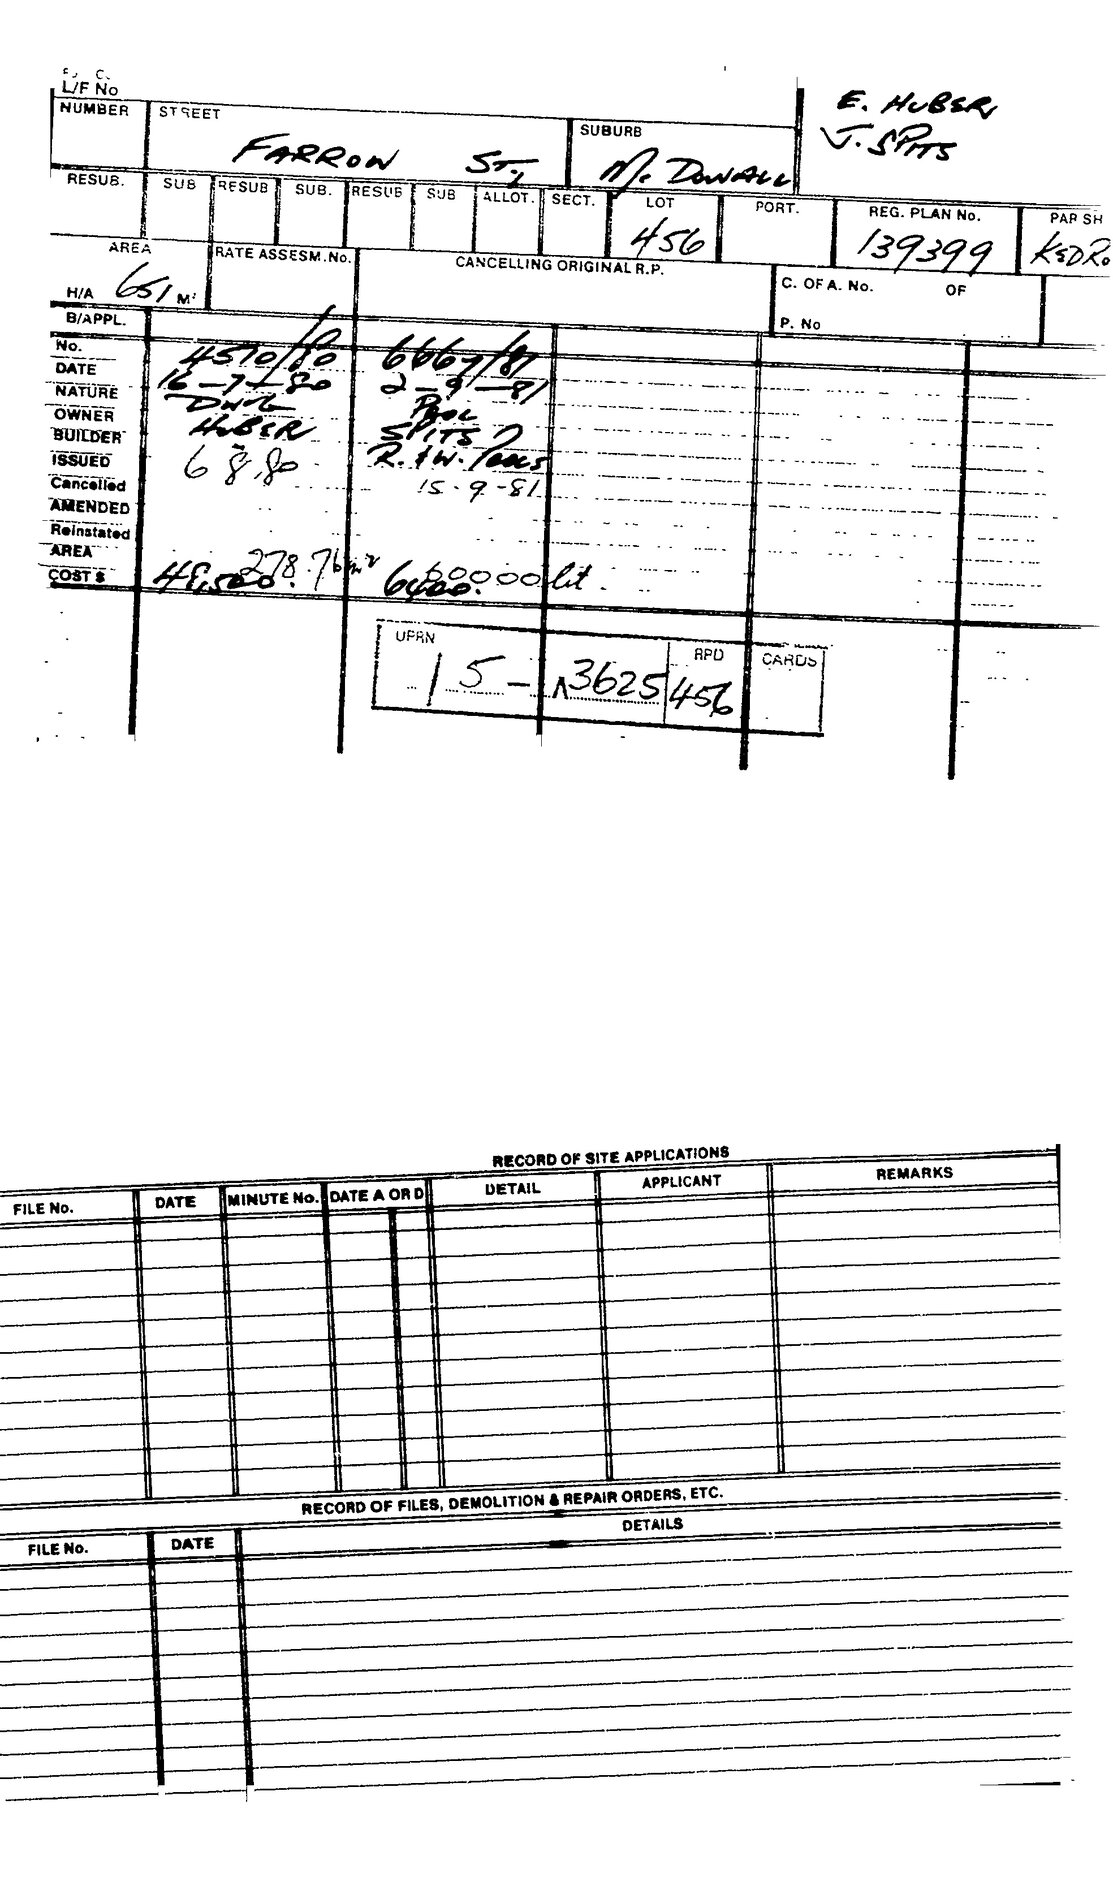 L/F No
E. HUBER
J. SPITS
NUMBER STREET SUBURB
FARROW ST., Mc DOWALL
RESUB. SUB RESUB SUB. RESUB SUB ALLOT. SECT. LOT PORT. REG. PLAN No. PARSH
456 139399 KEDRO
AREA RATE ASSESM.No. CANCELLING ORIGINAL R.P. C. OF A. No. OF
H/A 651 M² P. No
B/APPL.
No. 4510/80 6667/81
DATE 16-7-80 2-9-81
NATURE DWG POOL
OWNER HUBER SPITS
BUILDER R. & W. POOLS
ISSUED 6 8.80 15-9-81
Cancelled
AMENDED
Reinstated
AREA 278.76m² 60000 lit.
COST $ 48,500. 6400.
UPRN RPD CARDS
15-3625 456
RECORD OF SITE APPLICATIONS
FILE No. DATE MINUTE No. DATE A OR D DETAIL APPLICANT REMARKS
RECORD OF FILES, DEMOLITION & REPAIR ORDERS, ETC.
FILE No. DATE DETAILS